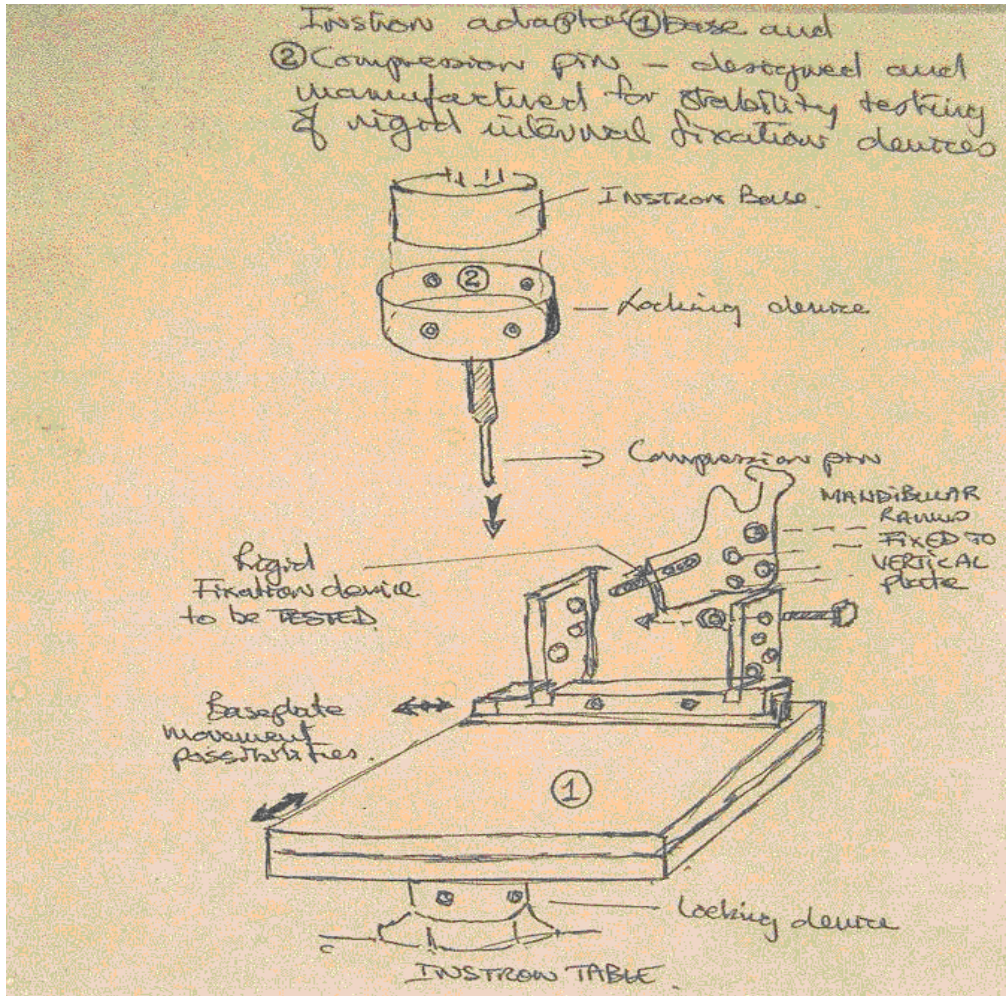 Instron adaptor ① base and
② Compression pin - designed and
manufactured for stability testing
of rigid internal fixation devices
INSTRON Base.
②
Locking device
Compression pin
MANDIBULAR
RAMUS
FIXED TO
VERTICAL
plate
Rigid
Fixation device
to be TESTED.
Baseplate
movement
possibilities.
①
Locking device
INSTRON TABLE.